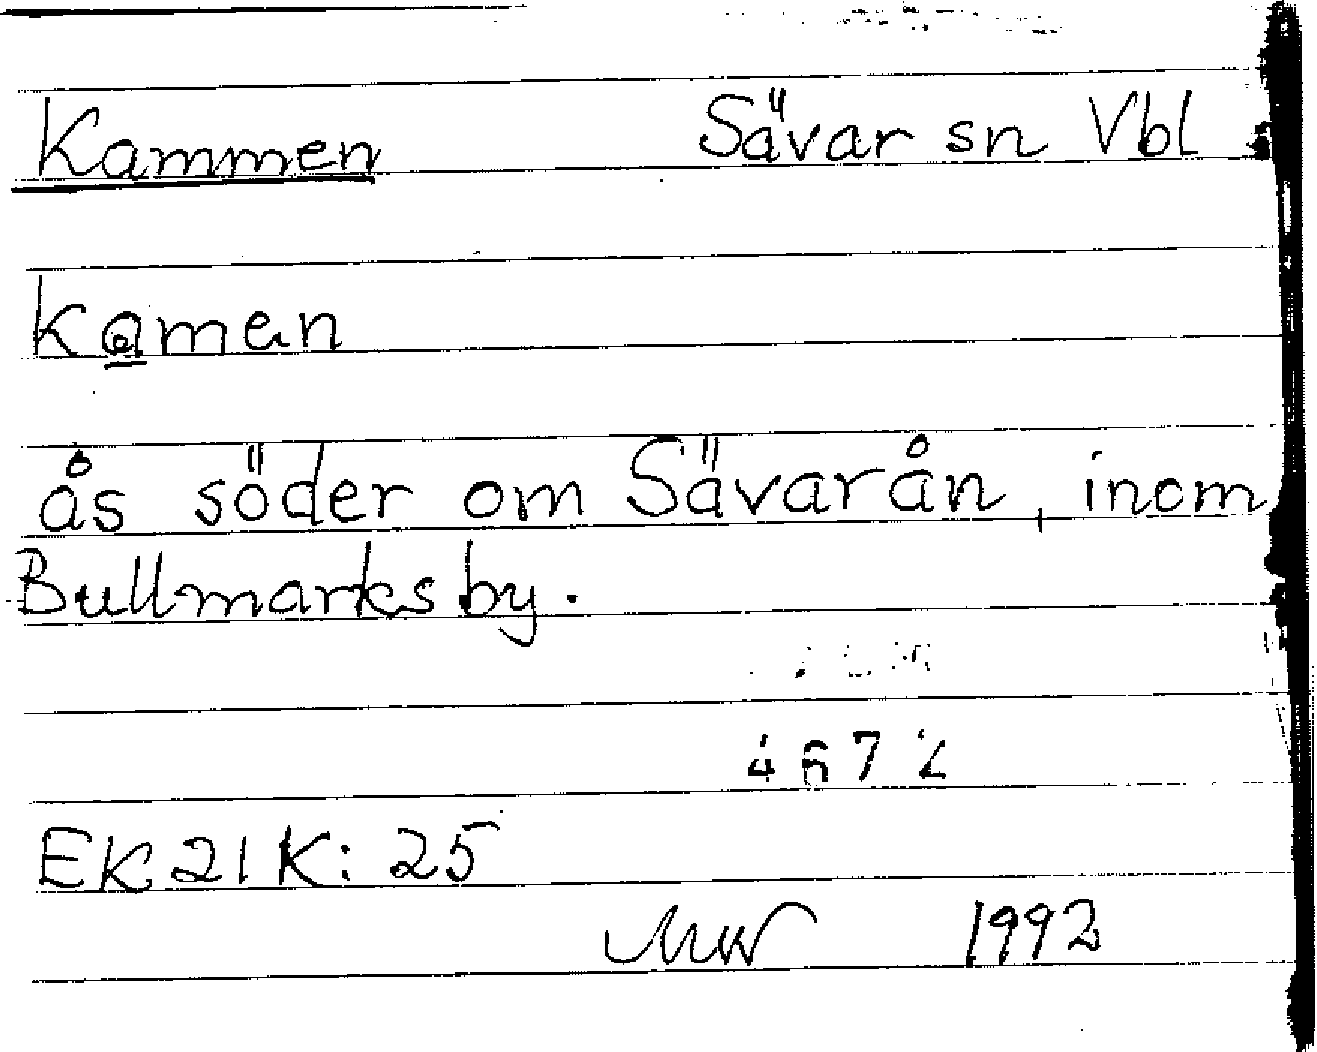 Kammen Sävar sn Vbl
kamen
ås söder om Sävarån, inom
Bullmarks by.
4672
EK 21 K: 25
MW 1992